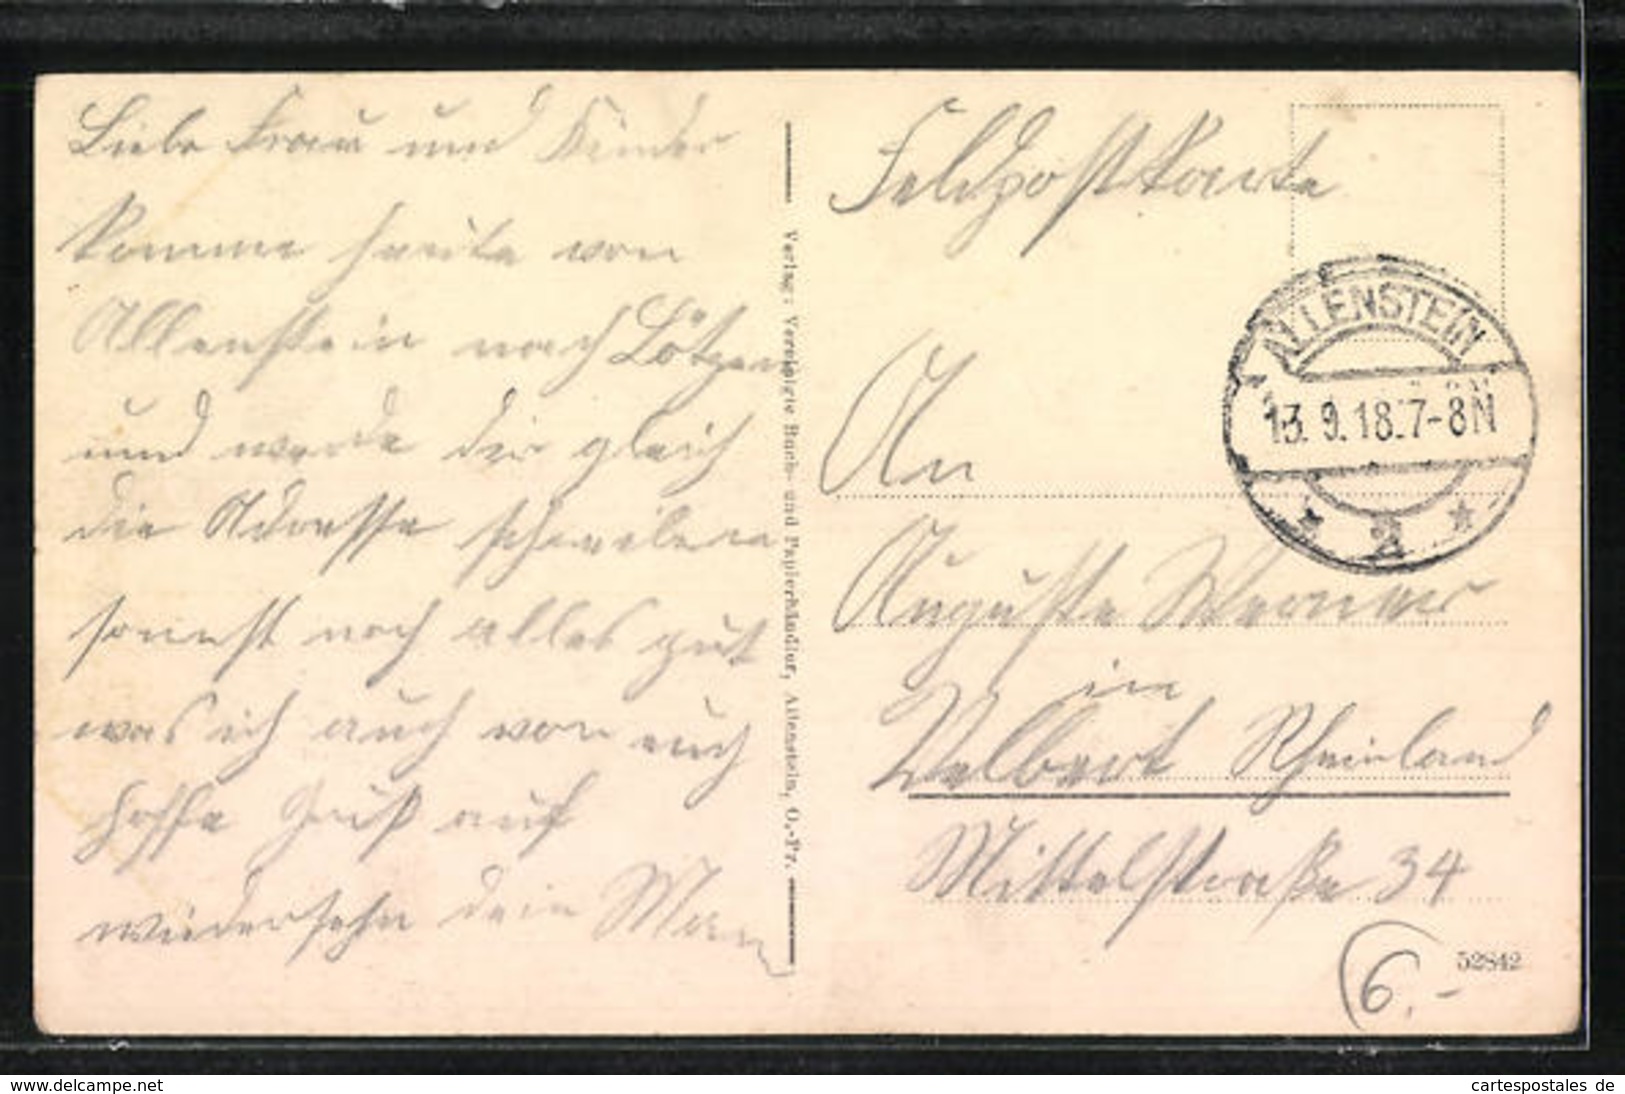 Liebe Frau und Kinder
komme heute von
Allenstein nach Lötzen
und werde dir gleich
die Adresse schreiben
sonnst noch alles gut
was ich auch von euch
hoffe Gruß auf
wiedersehn dein Man
Verlag: Vereinigte Buch- und Papierhändler, Allenstein, O.-Pr.
Feldpostkarte
ALLENSTEIN
13.9.18.7-8N
* 2 *
An
Auguste Werner
in
Velbert Rheinland
Mittelstraße 34
6,-
52842
www.delcampe.net
cartespostales de